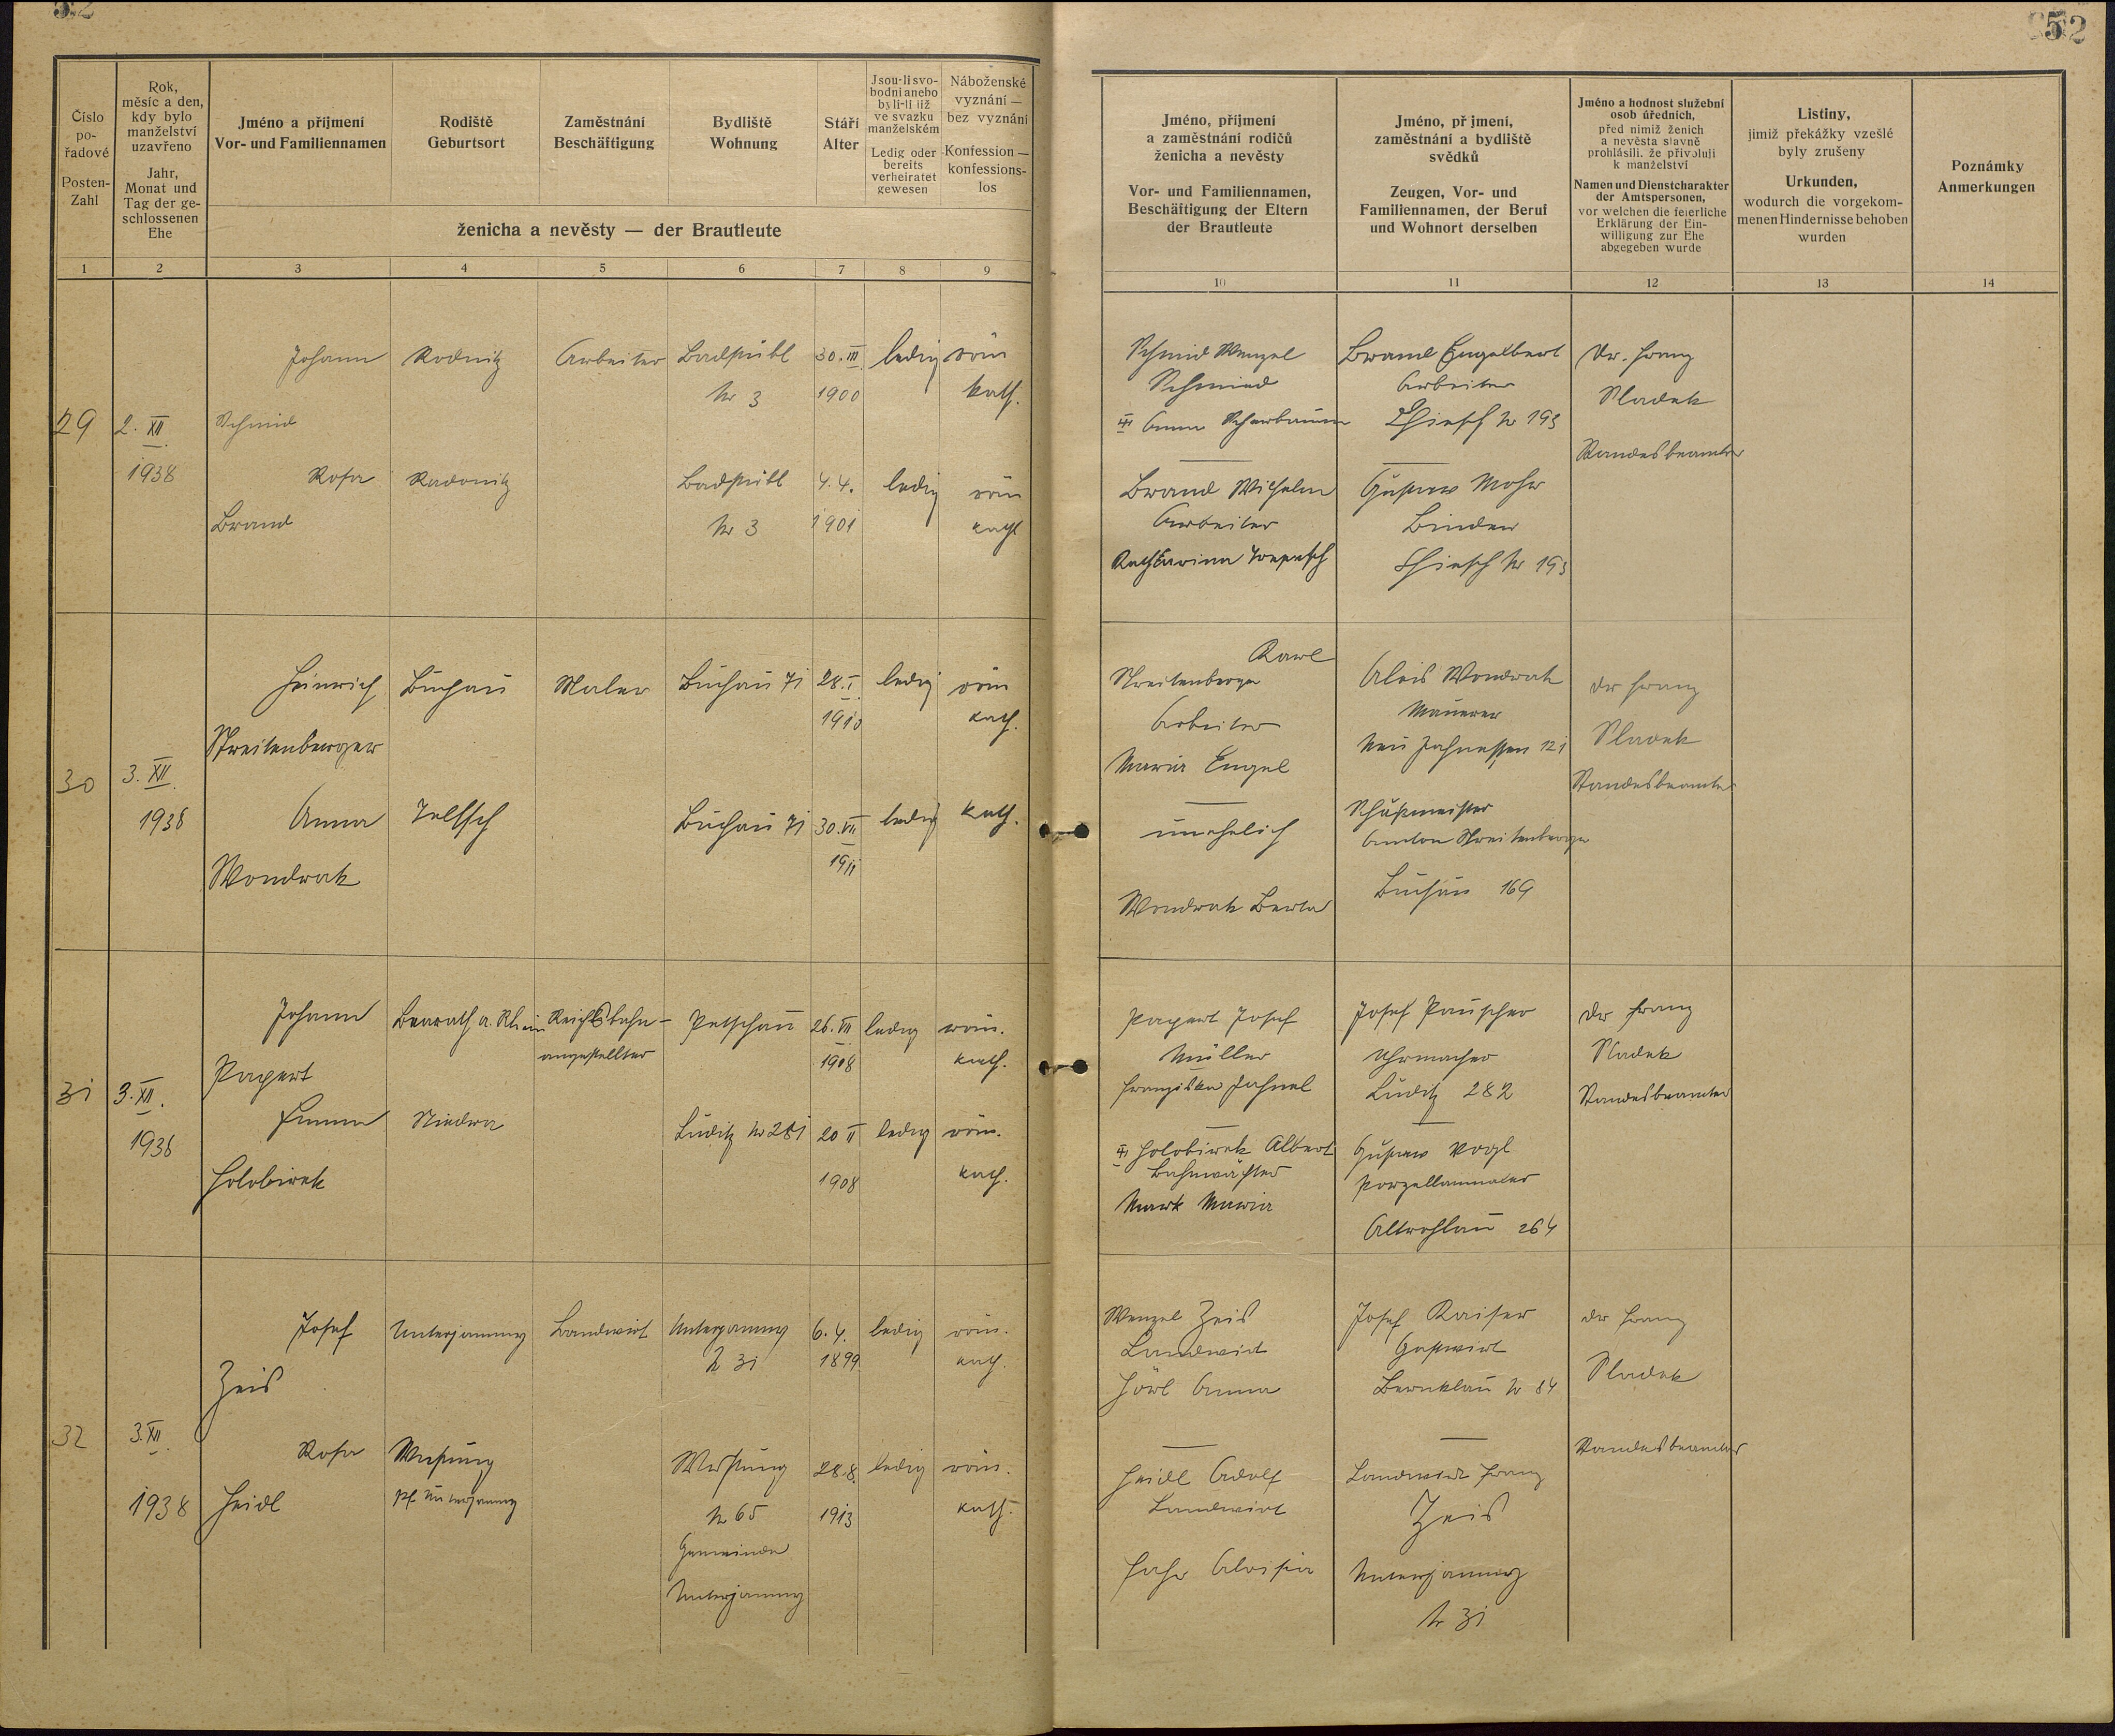 52
52
Číslo
po-
řadové
Posten-
Zahl
Rok,
měsíc a den,
kdy bylo
manželství
uzavřeno
Jahr,
Monat und
Tag der ge-
schlossenen
Ehe
Jméno a příjmení
Vor- und Familiennamen
Rodiště
Geburtsort
Zaměstnání
Beschäftigung
Bydliště
Wohnung
Stáří
Alter
Jsou-li svo-
bodni aneho
byli-li již
ve svazku
manželském
Ledig oder
bereits
verheiratet
gewesen
Náboženské
vyznání —
bez vyznání
Konfession —
konfessions-
los
ženicha a nevěsty — der Brautleute
Jméno, příjmení
a zaměstnání rodičů
ženicha a nevěsty
Vor- und Familiennamen,
Beschäftigung der Eltern
der Brautleute
Jméno, př jmení,
zaměstnání a bydliště
svědků
Zeugen, Vor- und
Familiennamen, der Beruf
und Wohnort derselben
Jméno a hodnost služební
osob úředních,
před nimiž ženich
a nevěsta slavně
prohlásili, že přivolují
k manželství
Namen und Dienstcharakter
der Amtspersonen,
vor welchen die feierliche
Erklärung der Ein-
willigung zur Ehe
abgegeben wurde
Listiny,
jimiž překážky vzešlé
byly zrušeny
Urkunden,
wodurch die vorgekom-
menen Hindernisse behoben
wurden
Poznámky
Anmerkungen
1 2 3 4 5 6 7 8 9 10 11 12 13 14
29
2. XII.
1938
Johann
Schmid
Rodnitz
Arbeiter
Nr 3
30. III.
1900
ledig
röm
kath.
Rosa
Brand
Radonitz
Nr 3
4. 4.
1901
ledig
röm
kath
Schmid Wenzel
Schmied
Anna
Brand Wilhelm
Arbeiter
Katharina
Brand Engelbert
Arbeiter
Chiesch Nr 193
Gustav Mohr
Binder
Chiesch Nr 193
Dr. Franz
Sladek
Standesbeamter
30
3. XII.
1938
Heinrich
Streitenberger
Buchau
Maler
Buchau 71
28. I.
1910
ledig
röm
kath.
Anna
Wondrak
Teltsch
Buchau 71
30. VII
1911
ledig
kath.
Karl
Streitenberger
Arbeiter
Maria Engel
unehelich
Wondrak Berta
Alois Wondrak
Maurer
Neu 121
Schuhmeister
Anton Streitenberger
Buchau 169
Dr Franz
Sladek
Standesbeamter
31
3. XII.
1938
Johann
Papert
Benrath a. Rhein
Reichsbahn-
angestellter
Petschau
26. VII
1908
ledig
röm.
kath.
Emma
Holobirek
Luditz Nr 281
20 II
1908
ledig
röm.
kath.
Papert Josef
Müller
Franziska Jahnel
Holobirek Albert
Bahnwächter
Mark Maria
Josef Pauscher
Uhrmacher
Luditz 282
Gustav Vogl
Porzellanmaler
Altrohlau 264
Dr Franz
Sladek
Standesbeamter
32
3. XII.
1938
Josef
Zeis
Unterjamny
Landwirt
Unterjamny
Nr 31
6. 4.
1899
ledig
röm.
kath.
Rosa
Heidl
Unterjamny
Nr 65
Gemeinde
Unterjamny
28.8.
1913
ledig
röm.
kath.
Wenzel Zeis
Landwirt
Hörl Anna
Heidl Adolf
Landwirt
Aloisia
Josef Kaiser
Gastwirt
Bernklau Nr 84
Landwirt Franz
Zeis
Unterjamny
Nr 31
Dr Franz
Sladek
Standesbeamter